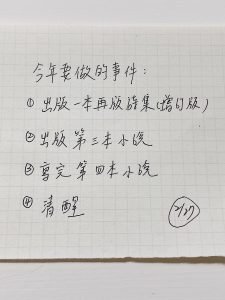 今年要做的事件：
① 出版一本再版詩集(增訂版)
② 出版第三本小说
③ 寫完第四本小说
④ 清醒
2/27